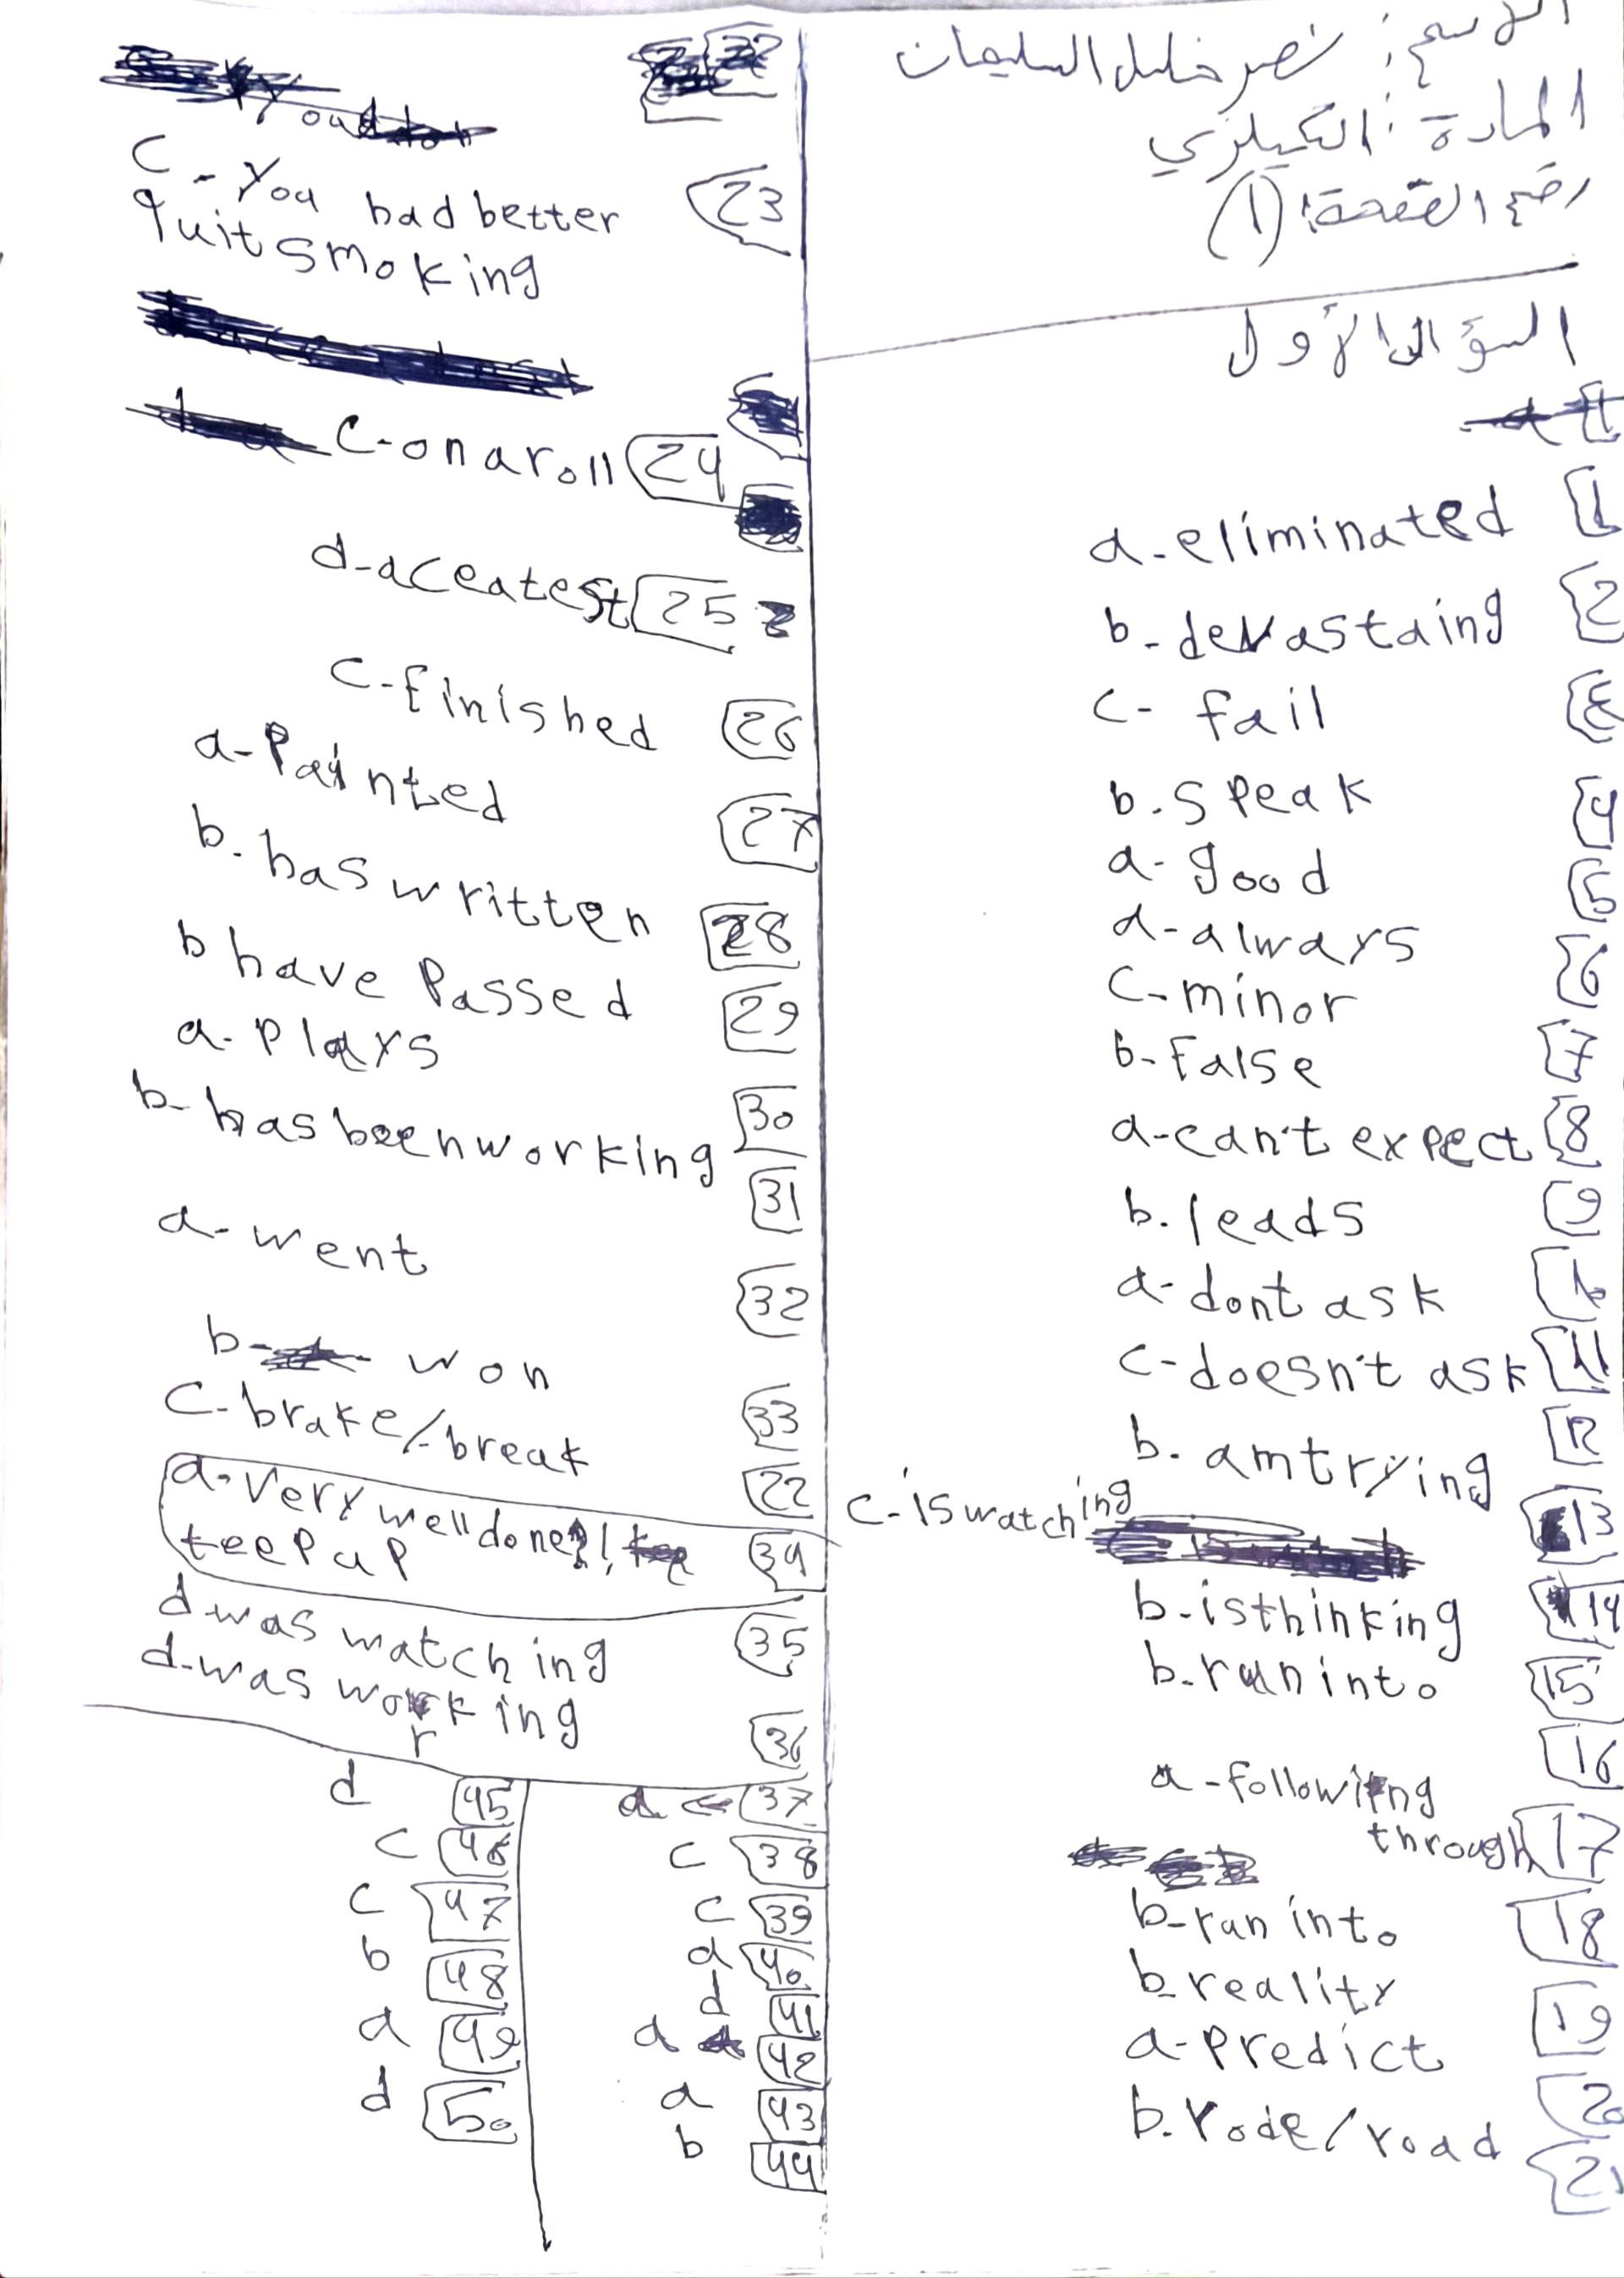 الاسم: نصر خليل السليمان
المادة: انكيلزي
رقم الصفحة: (1)
السؤال الأول
1 a-eliminated
2 b-devastaing
3 c- fail
4 b-speak
5 a-good
6 d-always
7 c-minor
8 b-false
9 a-can't expect
10 b-leads
11 a-dont ask
12 c-doesn't ask
13 b-am trying
14 c-is watching
15 b-is thinking
16 b-run into
17 a-following through
18 b-run into
19 b-reality
20 a-predict
21 b-rode/road
23 c-you had better
quit smoking
24 c-on a roll
25 d-aceatest
26 c-finished
27 a-painted
28 b-has written
29 b have passed
30 a-plays
31 b-has been working
32 a-went
33 b- won
22 c-brake/break
34 a-very well done!, 
teep up
35 d-was watching
36 d-was working
r
37 a
38 c
39 c
40 a
41 d
42 a
43 a
44 b
45 d
46 c
47 c
48 b
49 a
50 d